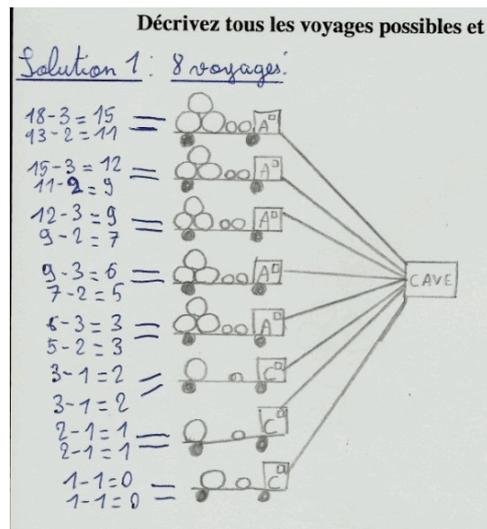 Décrivez tous les voyages possibles et
Solution 1 : 8 voyages.
18-3=15
13-2=11
A
15-3=12
11-2=9
A
12-3=9
9-2=7
A
9-3=6
7-2=5
A
CAVE
6-3=3
5-2=3
A
3-1=2
3-1=2
C
2-1=1
2-1=1
C
1-1=0
1-1=0
C